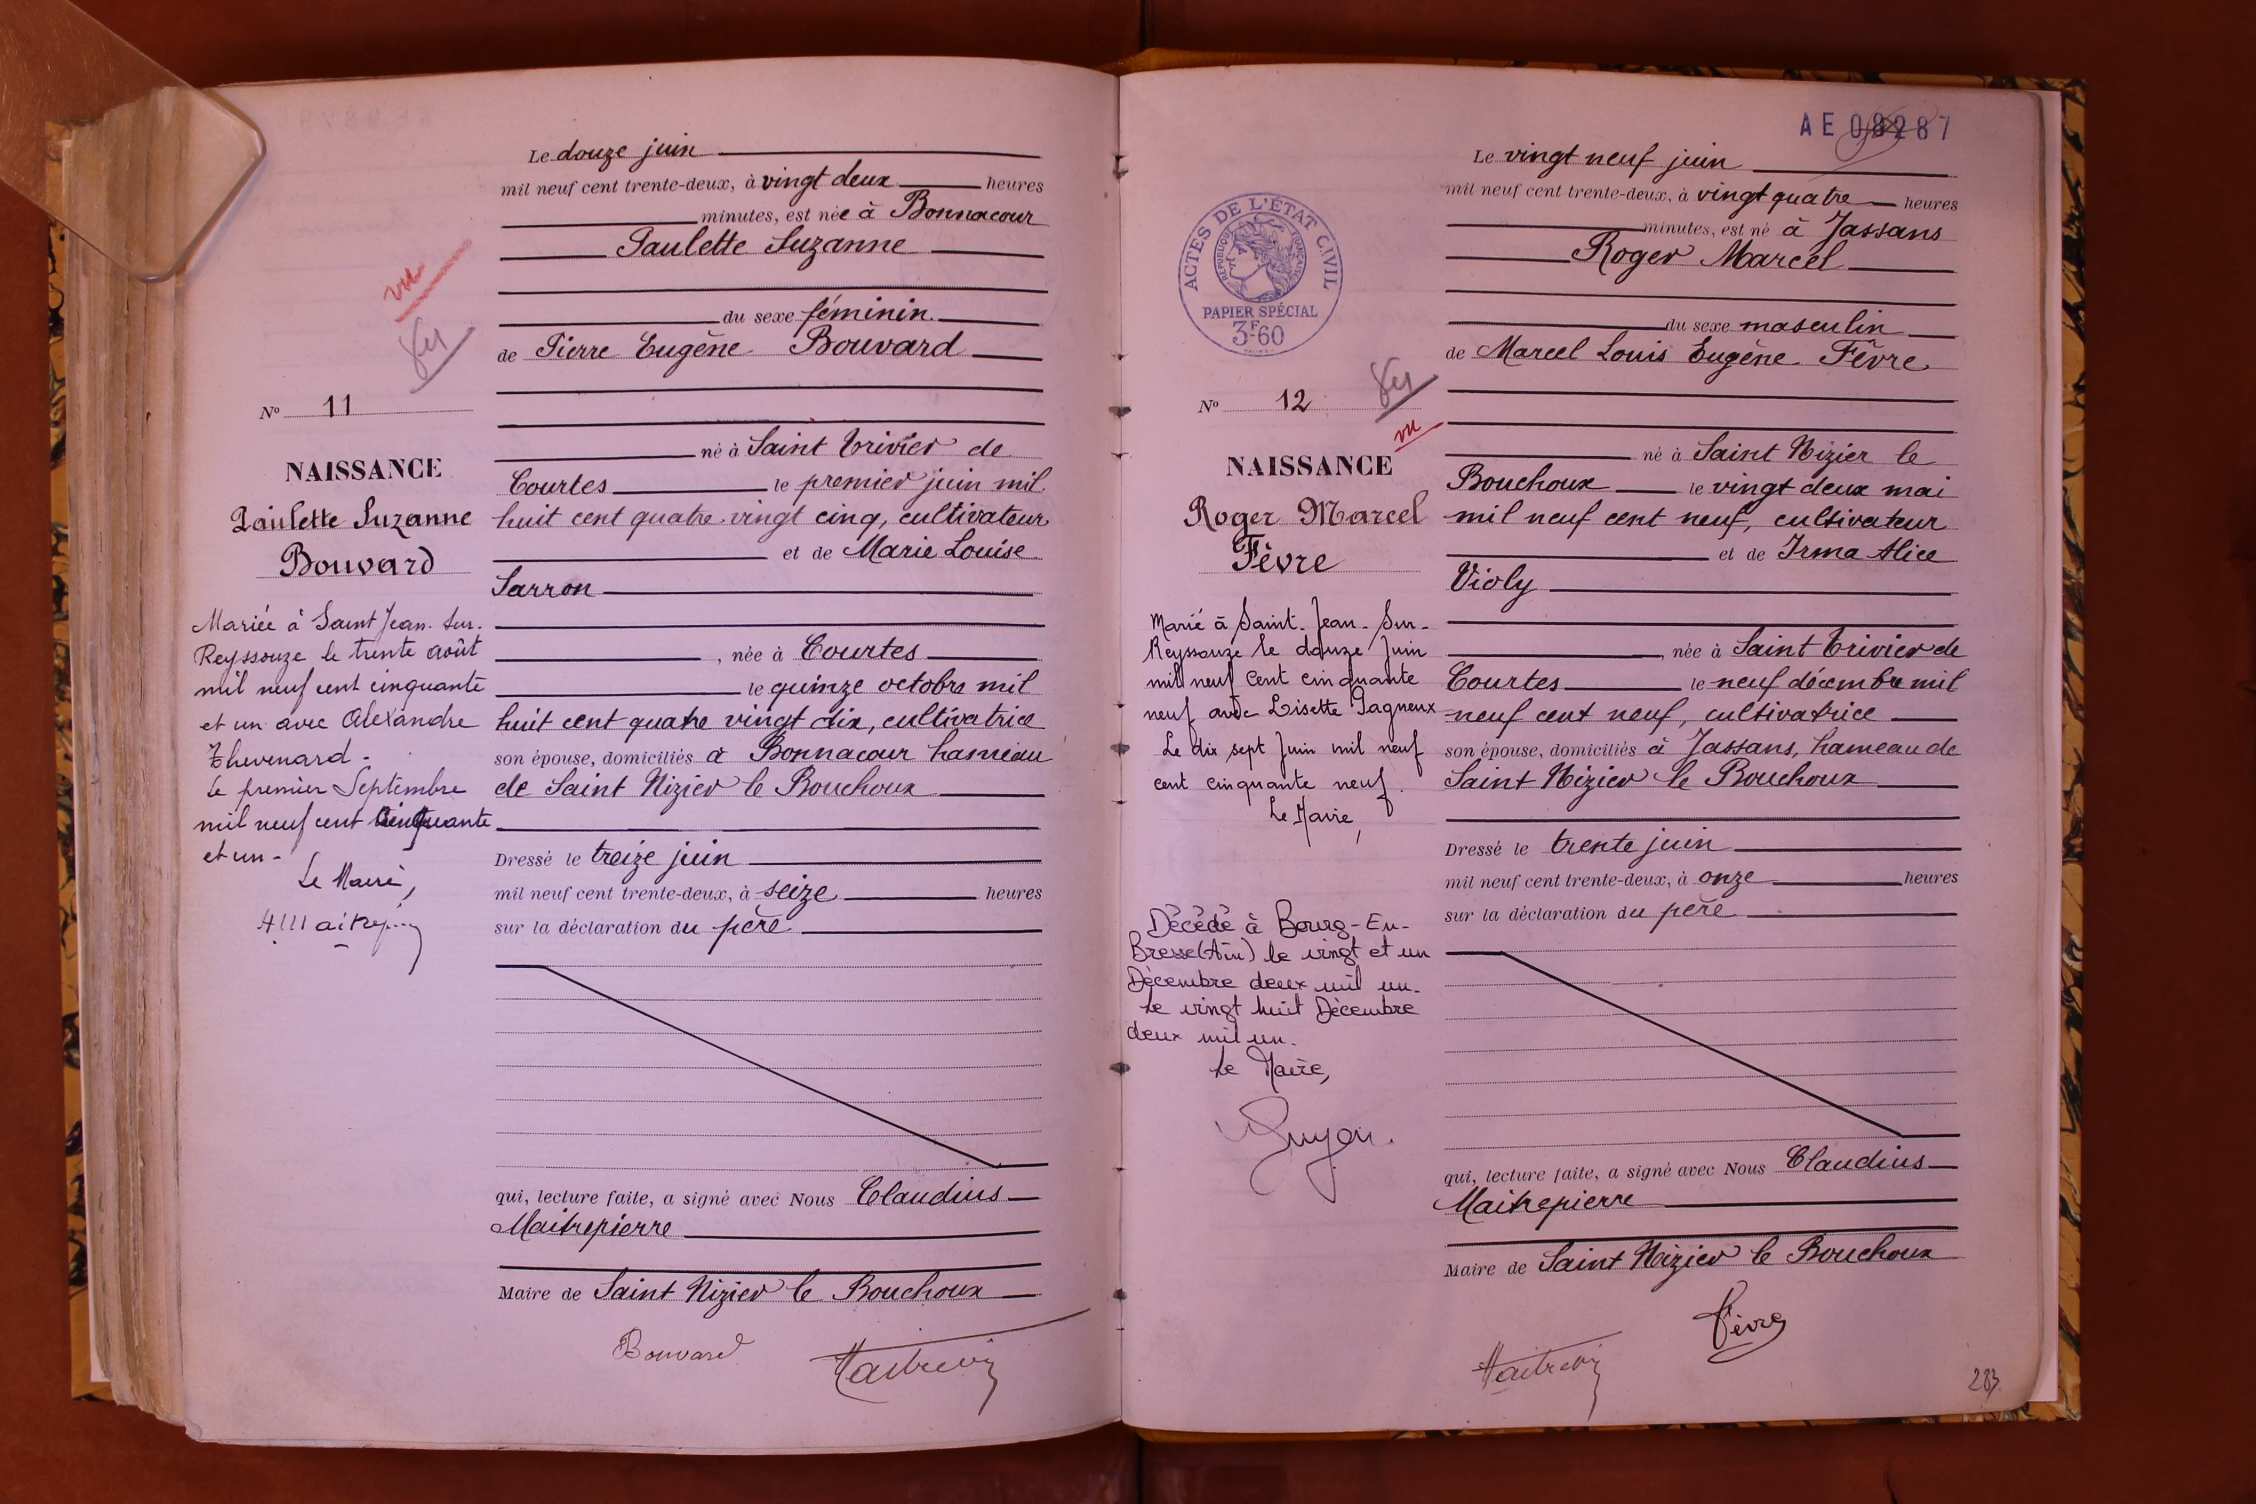 Le douze juin
mil neuf cent trente-deux, à vingt deux heures
minutes, est née à Bonnacour
Paulette Suzanne
du sexe féminin
de Pierre Eugène Bouvard
né à Saint Trivier de
Courtes le premier juin mil
huit cent quatre-vingt cinq, cultivateur
et de Marie Louise
Sarron
, née à Courtes
le quinze octobre mil
huit cent quatre vingt dix, cultivatrice
son épouse, domiciliés à Bonnacour hameau
de Saint Nizier le Bouchoux
Dressé le treize juin
mil neuf cent trente-deux, à seize heures
sur la déclaration du père
qui, lecture faite, a signé avec Nous Claudius
Maitrepierre
Maire de Saint Nizier le Bouchoux
Bouvard
vu
No 11
NAISSANCE
Paulette Suzanne
Bouvard
Mariée à Saint Jean-sur-
Reyssouze le trente août
mil neuf cent cinquante
et un avec Alexandre
Thevenard -
Le premier Septembre
mil neuf cent cinquante
et un -
Le Maire,
AE 08287
Le vingt neuf juin
mil neuf cent trente-deux, à vingt quatre heures
minutes, est né à Jassans
Roger Marcel
du sexe masculin
de Marcel Louis Eugène Fèvre
né à Saint Nizier le
Bouchoux le vingt deux mai
mil neuf cent neuf, cultivateur
et de Irma Alice
Violy
, née à Saint Trivier de
Courtes le neuf décembre mil
neuf cent neuf, cultivatrice
son épouse, domiciliés à Jassans, hameau de
Saint Nizier le Bouchoux
Dressé le trente juin
mil neuf cent trente-deux, à onze heures
sur la déclaration du père
qui, lecture faite, a signé avec Nous Claudius
Maitrepierre
Maire de Saint Nizier le Bouchoux
Fèvre
283
ACTES DE L'ÉTAT CIVIL
RÉPUBLIQUE FRANÇAISE
PAPIER SPÉCIAL
3F60
No 12
vu
NAISSANCE
Roger Marcel
Fèvre
Marié à Saint-Jean-Sur-
Reyssouze le douze Juin
mil neuf cent cinquante
neuf avec Lisette Pagneux
Le dix sept Juin mil neuf
cent cinquante neuf.
Le Maire,
Décédé à Bourg-En-
Bresse (Ain) le vingt et un
Décembre deux mil un.
Le vingt huit Décembre
deux mil un.
Le Maire,